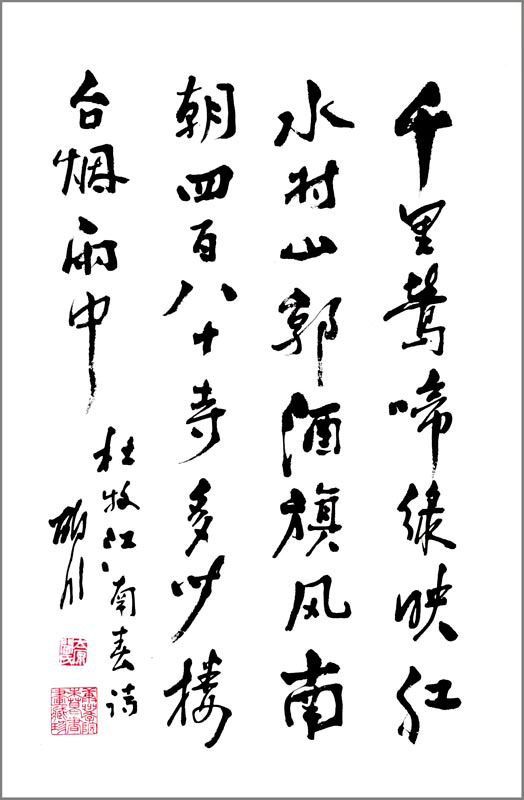 千里莺啼绿映红
水村山郭酒旗风南
朝四百八十寺多少楼
台烟雨中
杜牧江南春诗